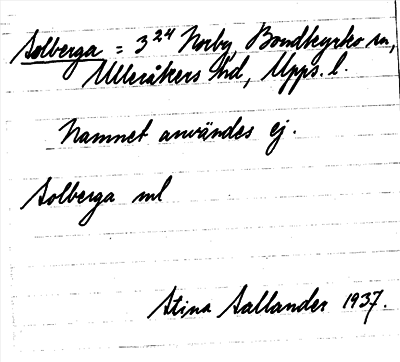 Solberga = 3²⁴ Norby, Bondkyrko sn,
Ulleråkers hd, Upps. l.
Namnet användes ej.
Solberga ml
Stina Sallander 1937.